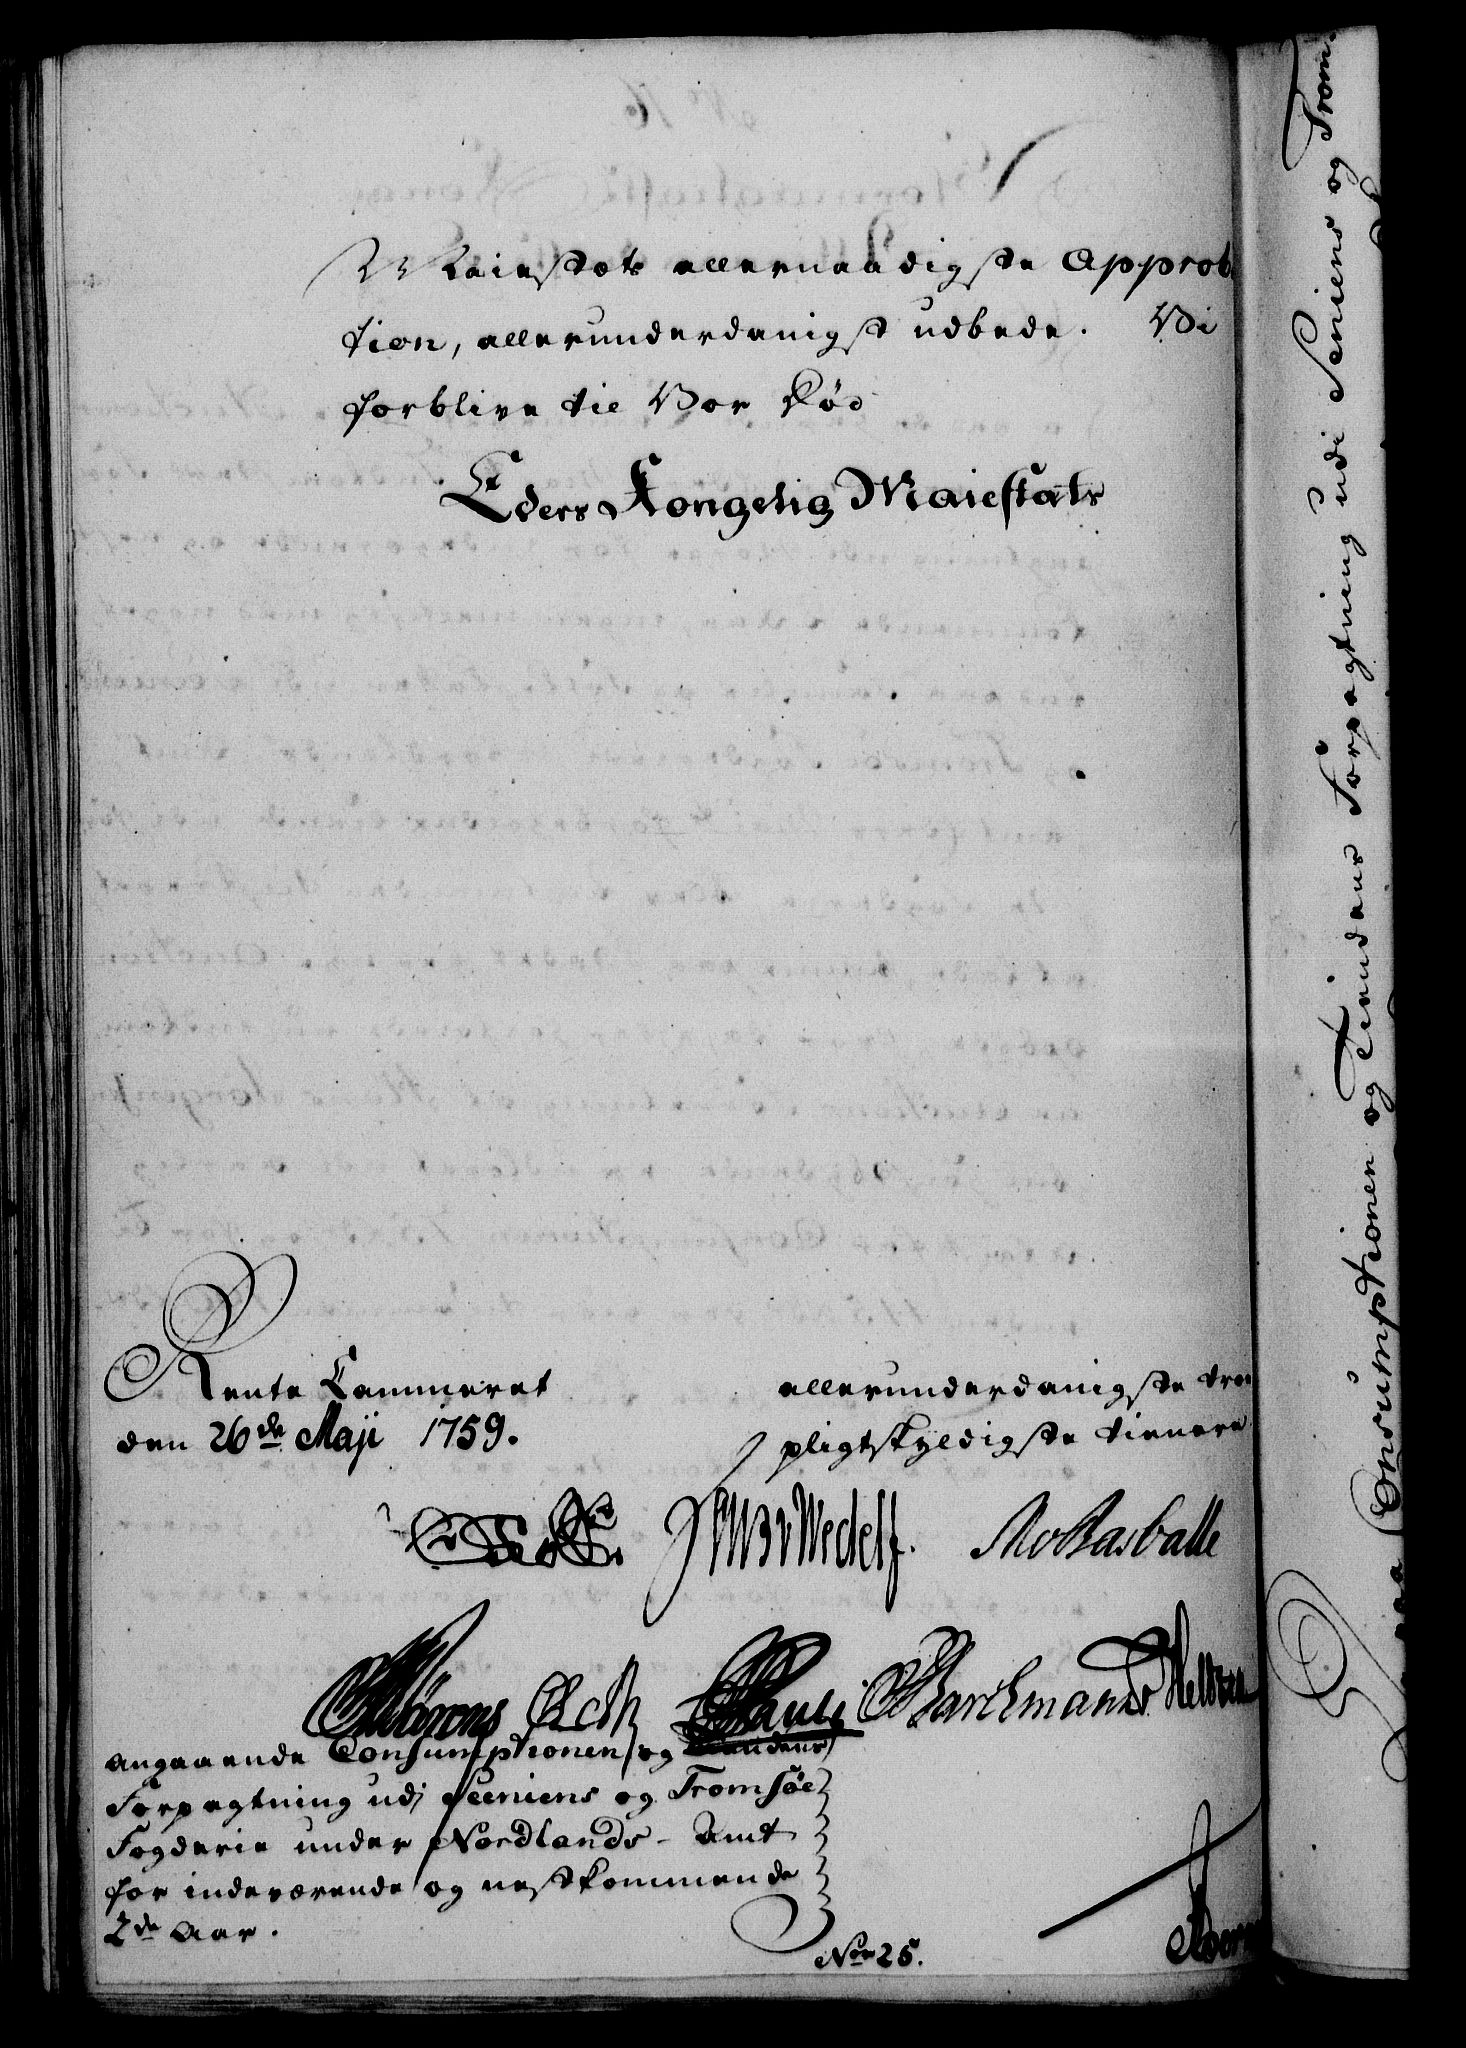 Maiestæts allernaadigste Approba
tion, allerunderdanigst udbede. Vi
forblive til Vor Død
Eders Kongelig Maiestæts
Rente Cammeret
den 26de Maji 1759.
allerunderdanigste troe
pligtskyldigste tienere
Wedell.
Barchmann
angaaende Consumptionen og Tiendens
Forpagtning udj Seniens og Tromsøe
Fogderie under Nordlands-Amt
for indeværende og nestkommende
2de Aar.
Nro 25.
Consumptionen og Tiendens Forpagtning udi Seniens og Trom.